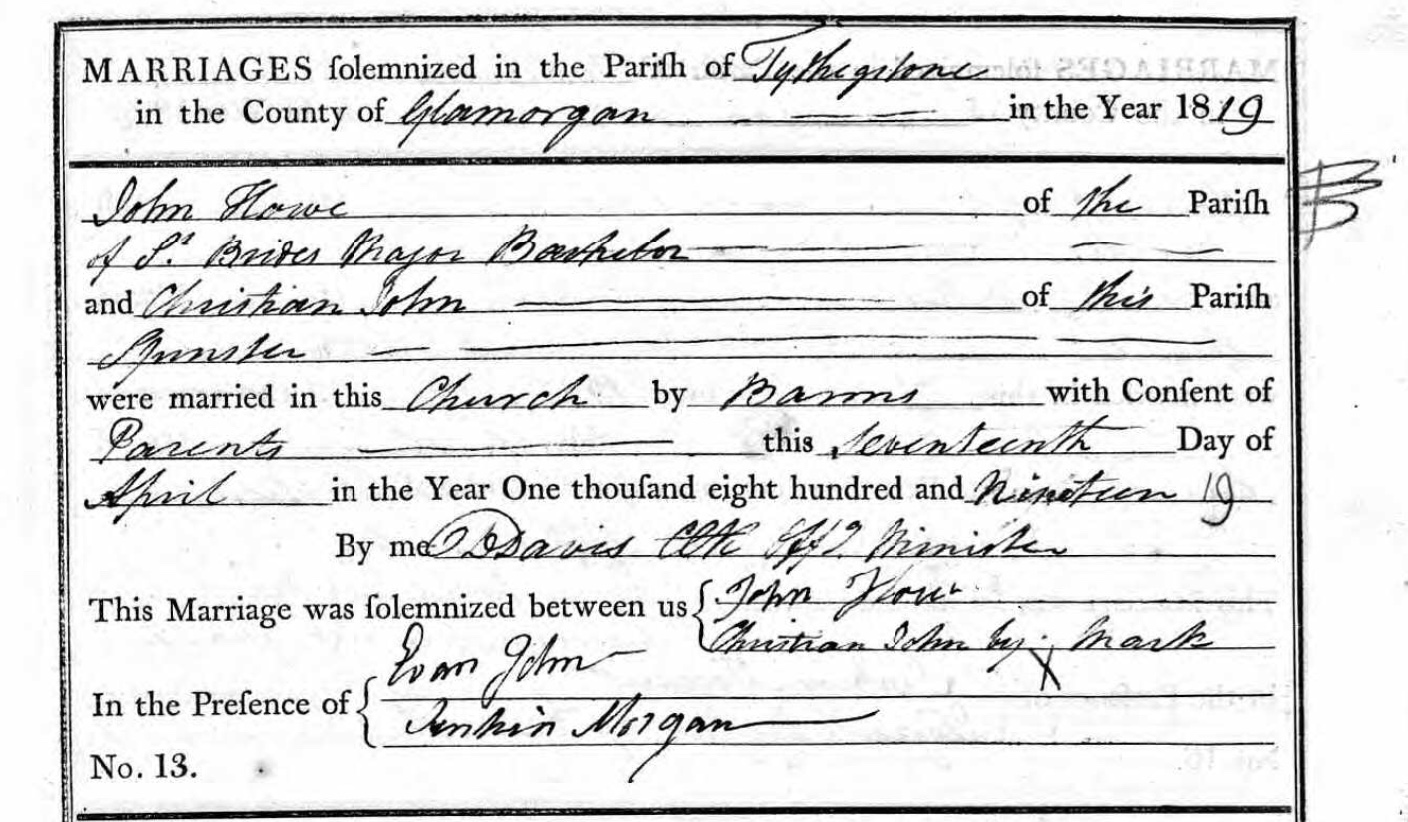 MARRIAGES ſolemnized in the Pariſh of Tythegstone
in the County of Glamorgan — — — in the Year 1819
John Howe of the Pariſh
of St. Brides Major Bachelor — — — —
and Christian John — of this Pariſh
Spinster — — — —
were married in this Church by Banns with Conſent of
Parents — — this Seventeenth Day of
April in the Year One thouſand eight hundred and Nineteen 19
By me Davis Minister
This Marriage was ſolemnized between us { John How
Christian John by X Mark
In the Preſence of { Evan John
Jenkin Morgan
No. 13.
B